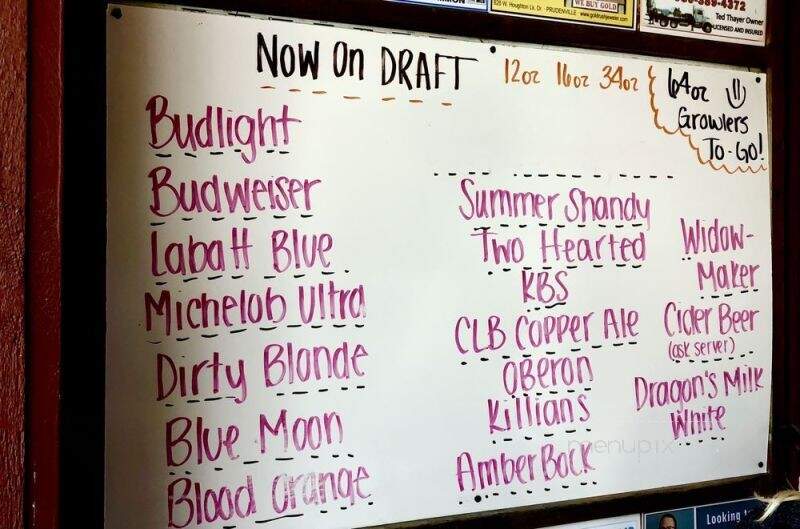 828 W. Houghton Lk. Dr · PRUDENVILLE
WE BUY GOLD
Ted Thayer Owner
LICENSED AND INSURED
Now On DRAFT
12oz 16oz 34oz
64oz
Growlers
To-Go!
Budlight
Budweiser
Labatt Blue
Michelob Ultra
Dirty Blonde
Blue Moon
Blood Orange
Summer Shandy
Two Hearted
KBS
CLB Copper Ale
Oberon
Killians
Amber Bock
Widow-
Maker
Cider Beer
(ask server)
Dragon's Milk
White
menupix
Looking